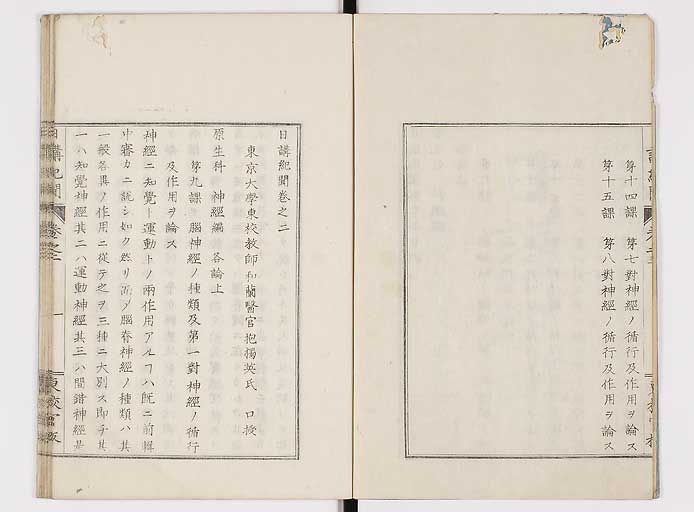 第十四課　第七對神經ノ循行及作用ヲ論ス
第十五課　第八對神經ノ循行及作用ヲ論ス
日講紀聞卷之二
東京大學東校教師和蘭醫官抱獨英氏　口授
原生科　神經編　各論上
第九課　腦神經ノ種類及第一對神經ノ循行
及作用ヲ論ス
神經ニ知覺ト運動トノ兩作用アルヿハ既ニ前輯
中審カニ説シ如ク然リ而メ腦脊神經ノ種類ハ其
一般各異ノ作用ニ從テ之ヲ三種ニ大別ス即チ其
一ハ知覺神經其二ハ運動神經其三ハ間錯神經是
講紀聞
卷之二
一
東校官版